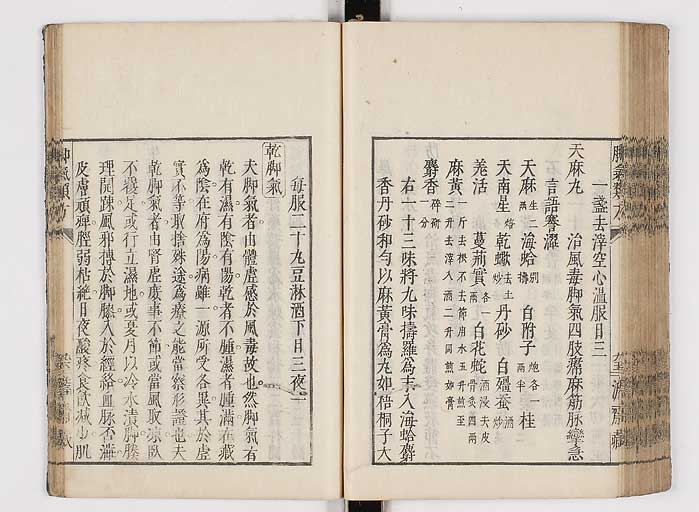 一盞去滓空心溫服日三
天麻丸　治風毒脚氣四肢痛麻筋脉攣急
言語謇澀
天麻 生二兩 海蛤 別研 白附子 炮各一兩半 桂
天南星 炮 乾蠍 去土炒 丹砂 白殭蚕 炒
羌活 蔓荊實 各一兩 白花蛇 酒浸去皮骨炙四兩
麻黃 一斤去根不去節用水五升煎至二升去滓入酒二升同煎如膏
麝香 一分 碎研
右一十三味將九味擣羅爲末入海蛤麝
香丹砂和勻以麻黃膏爲丸如梧桐子大
每服二十丸豆淋酒下日三夜一
乾脚氣
夫脚氣者由體虛感於風毒故也然脚氣有
乾有濕有陰有陽乾者不腫濕者腫滿在藏
爲陰在府爲陽病雖一源所受各異其於虛
實不等取捨殊途爲療之能當察形證也夫
乾脚氣者由腎虛歲事不節或當風取凉臥
不寢足或行立濕地或夏月以冷水漬脚膝
理開疎風邪搏於脚膝入於經絡血脉否澀
皮膚頑痺脛弱枯絶日夜酸疼食飮減少肌
脚氣類方